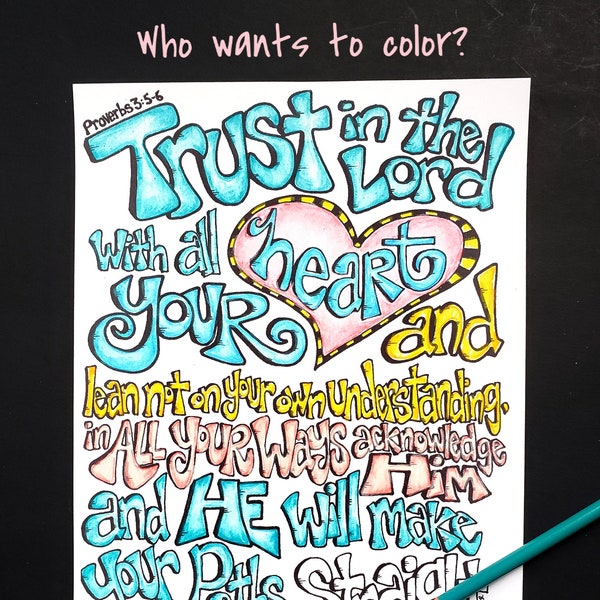 Who wants to color?
Proverbs 3:5-6
Trust in the
Lord
with all
your heart
and
lean not on your own understanding.
in All your Ways acknowledge
Him
and HE will make
your Paths Straight